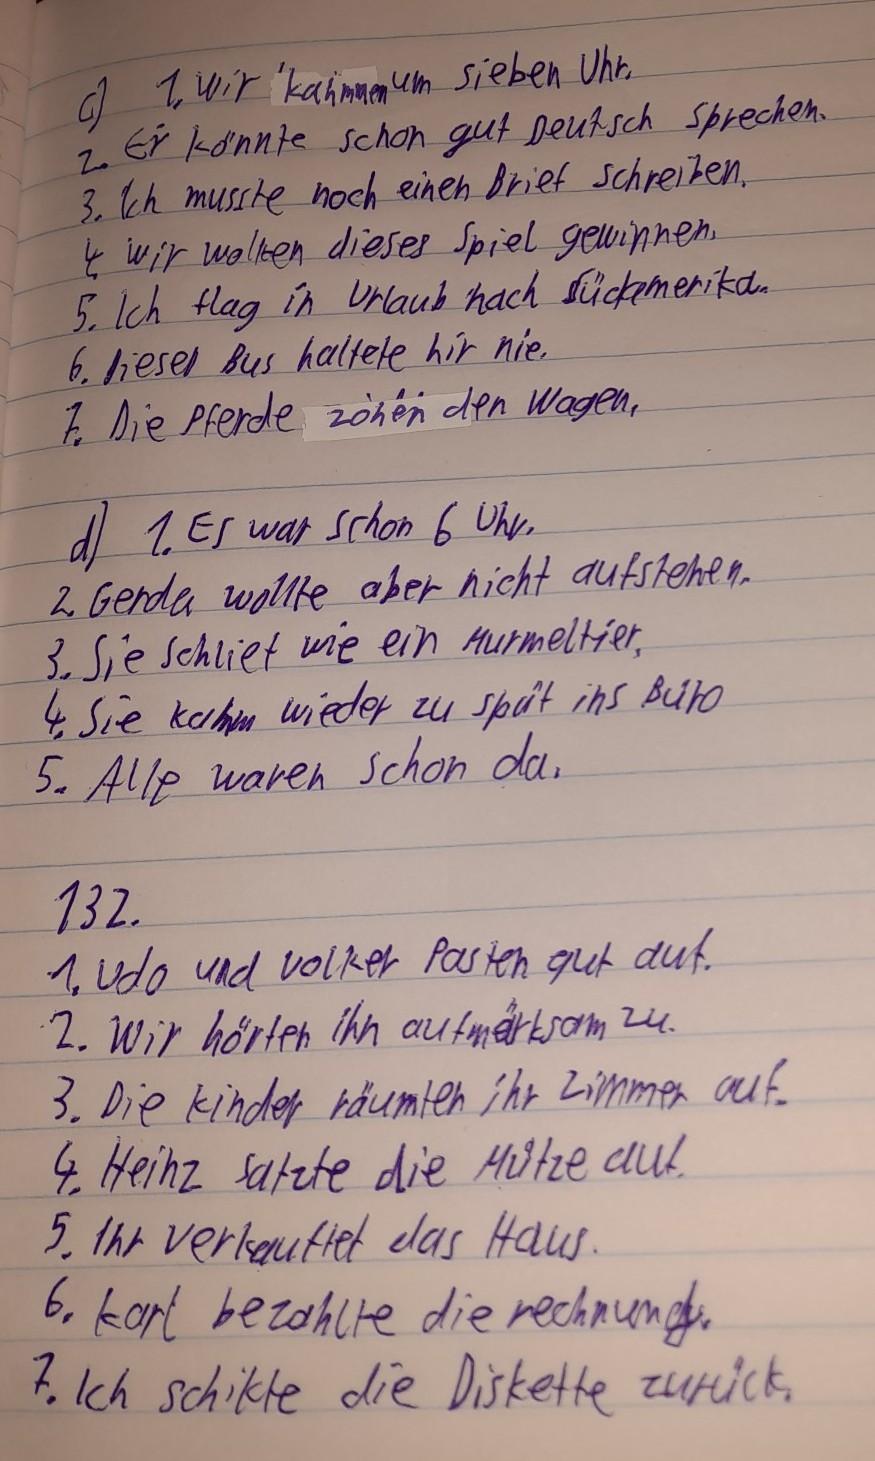 c) 1. Wir kahmmen um sieben Uhr.
2. Er könnte schon gut Deutsch sprechen.
3. Ich musste noch einen Brief schreiben.
4. Wir wolten dieses Spiel gewinnen.
5. Ich flag in Urlaub nach Südamerika.
6. Dieser Bus haltete hir nie.
7. Die Pferde zohen den Wagen.
d) 1. Es war schon 6 Uhr.
2. Gerda wollte aber nicht aufstehen.
3. Sie schlief wie ein Murmeltier.
4. Sie kahm wieder zu spät ins Büro
5. Alle waren schon da.
132.
1. Udo und Volker Pasten gut auf.
2. Wir hörten ihn aufmärksam zu.
3. Die Kinder räumten ihr Zimmer auf.
4. Heinz satzte die Mütze auf.
5. Ihr verkauftet das Haus.
6. Karl bezahlte die rechnung.
7. Ich schikte die Diskette zurück.